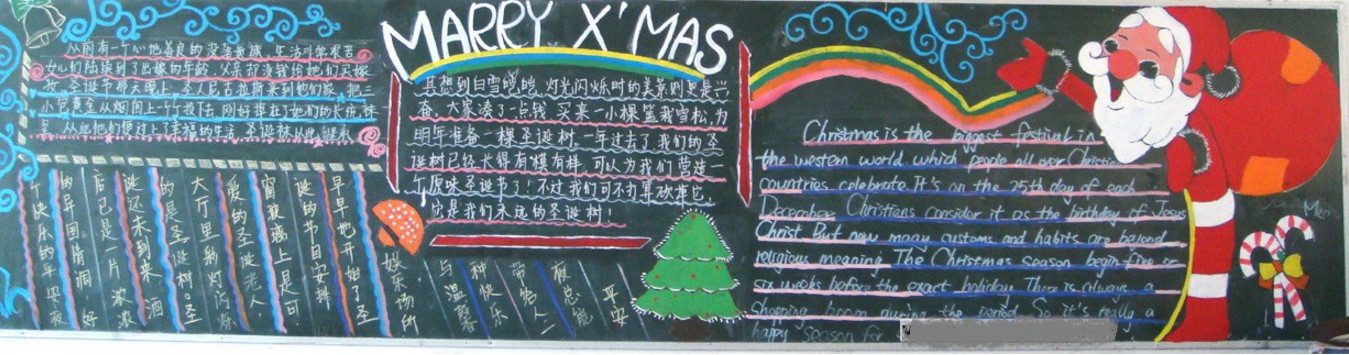 MARRY X'MAS
从前有一个心地善良的没落贵族,生活非常艰苦
女儿们陆续到了出嫁的年龄,父亲却没钱给她们买嫁
妆。圣诞节那天晚上,圣人尼古拉斯来到他们家,把三
小包黄金从烟囱上一个个投下去,刚好掉在了她们的长筒袜
从此他们便过上了幸福的生活,圣诞袜从此
娱乐场所
早早地开始了圣
诞的节目安排
窗玻璃上是可
爱的圣诞老人,
大厅里彩灯闪烁
的是圣诞树。圣
诞还未到来,酒
后已是一片浓浓
的异国情调,好
个快乐的平安夜
其想到白雪皑皑、灯光闪烁时的美景则更是兴
奋,大家凑了一点钱,买来一小棵篮我雪松,为
明年准备一棵圣诞树.一年过去了,我们的圣
诞树已经长得有模有样,可以为我们营造一
个原味圣诞节了!不过我们可不打算砍掉它,
它是我们永远的圣诞树!
平安
总能
带给人一
种快乐
与温馨
Christmas is the biggest festival in
the western world which people all over Christian
countries celebrate. It's on the 25th day of each
December. Christians consider it as the birthday of Jesus
Christ. But now many customs and habits are beyond
religious meaning. The Christmas season begin five or
six weeks before the exact holiday. There is always a
shopping boom during the period. So it's really a
happy season for